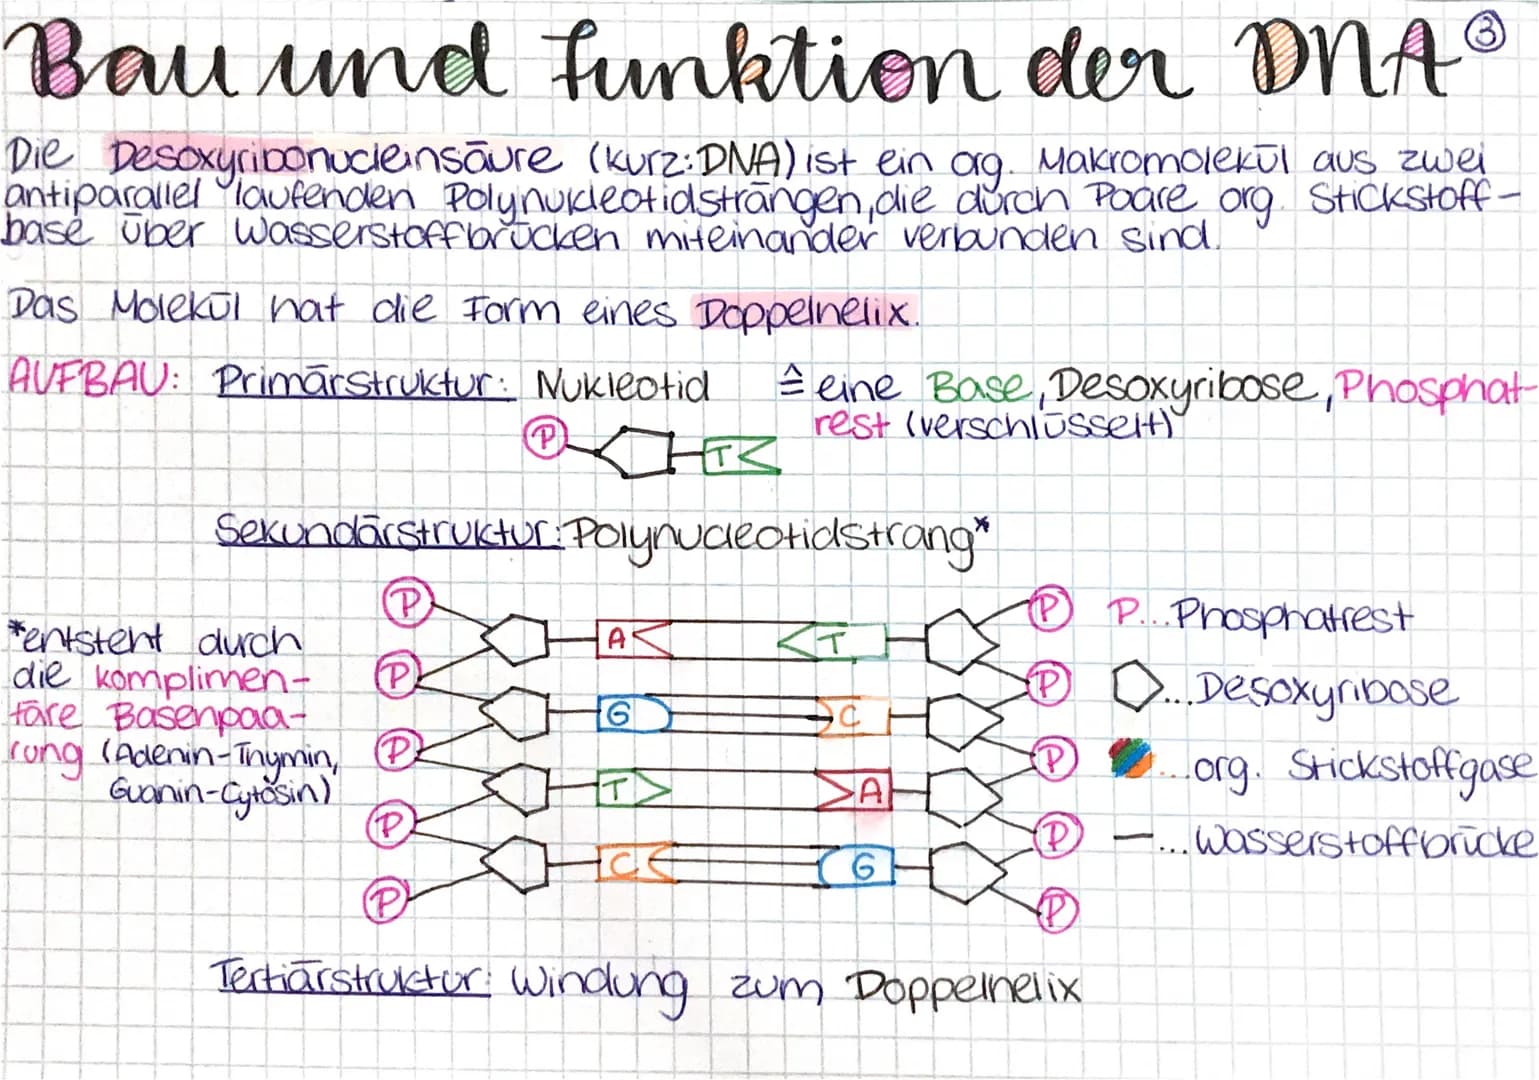 Bau und Funktion der DNA ③
Die Desoxyribonucleinsäure (kurz: DNA) ist ein org. Makromolekül aus zwei
antiparallel laufenden Polynukleotidsträngen, die durch Paare org. Stickstoff-
base über Wasserstoffbrücken miteinander verbunden sind.
Das Molekül hat die Form eines Doppelhelix.
AUFBAU: Primärstruktur: Nukleotid ≙ eine Base, Desoxyribose, Phosphat-
rest (verschlüsselt)
P T
Sekundärstruktur: Polynucleotidstrang*
P P P...Phosphatrest
A T
*entsteht durch
die komplimen-
täre Basenpaa-
rung (Adenin-Thymin,
Guanin-Cytosin)
P P ...Desoxyribose
G C
P P ...org. Stickstoffgase
T A
P P —...Wasserstoffbrücke
C G
P P
Tertiärstruktur: Windung zum Doppelhelix